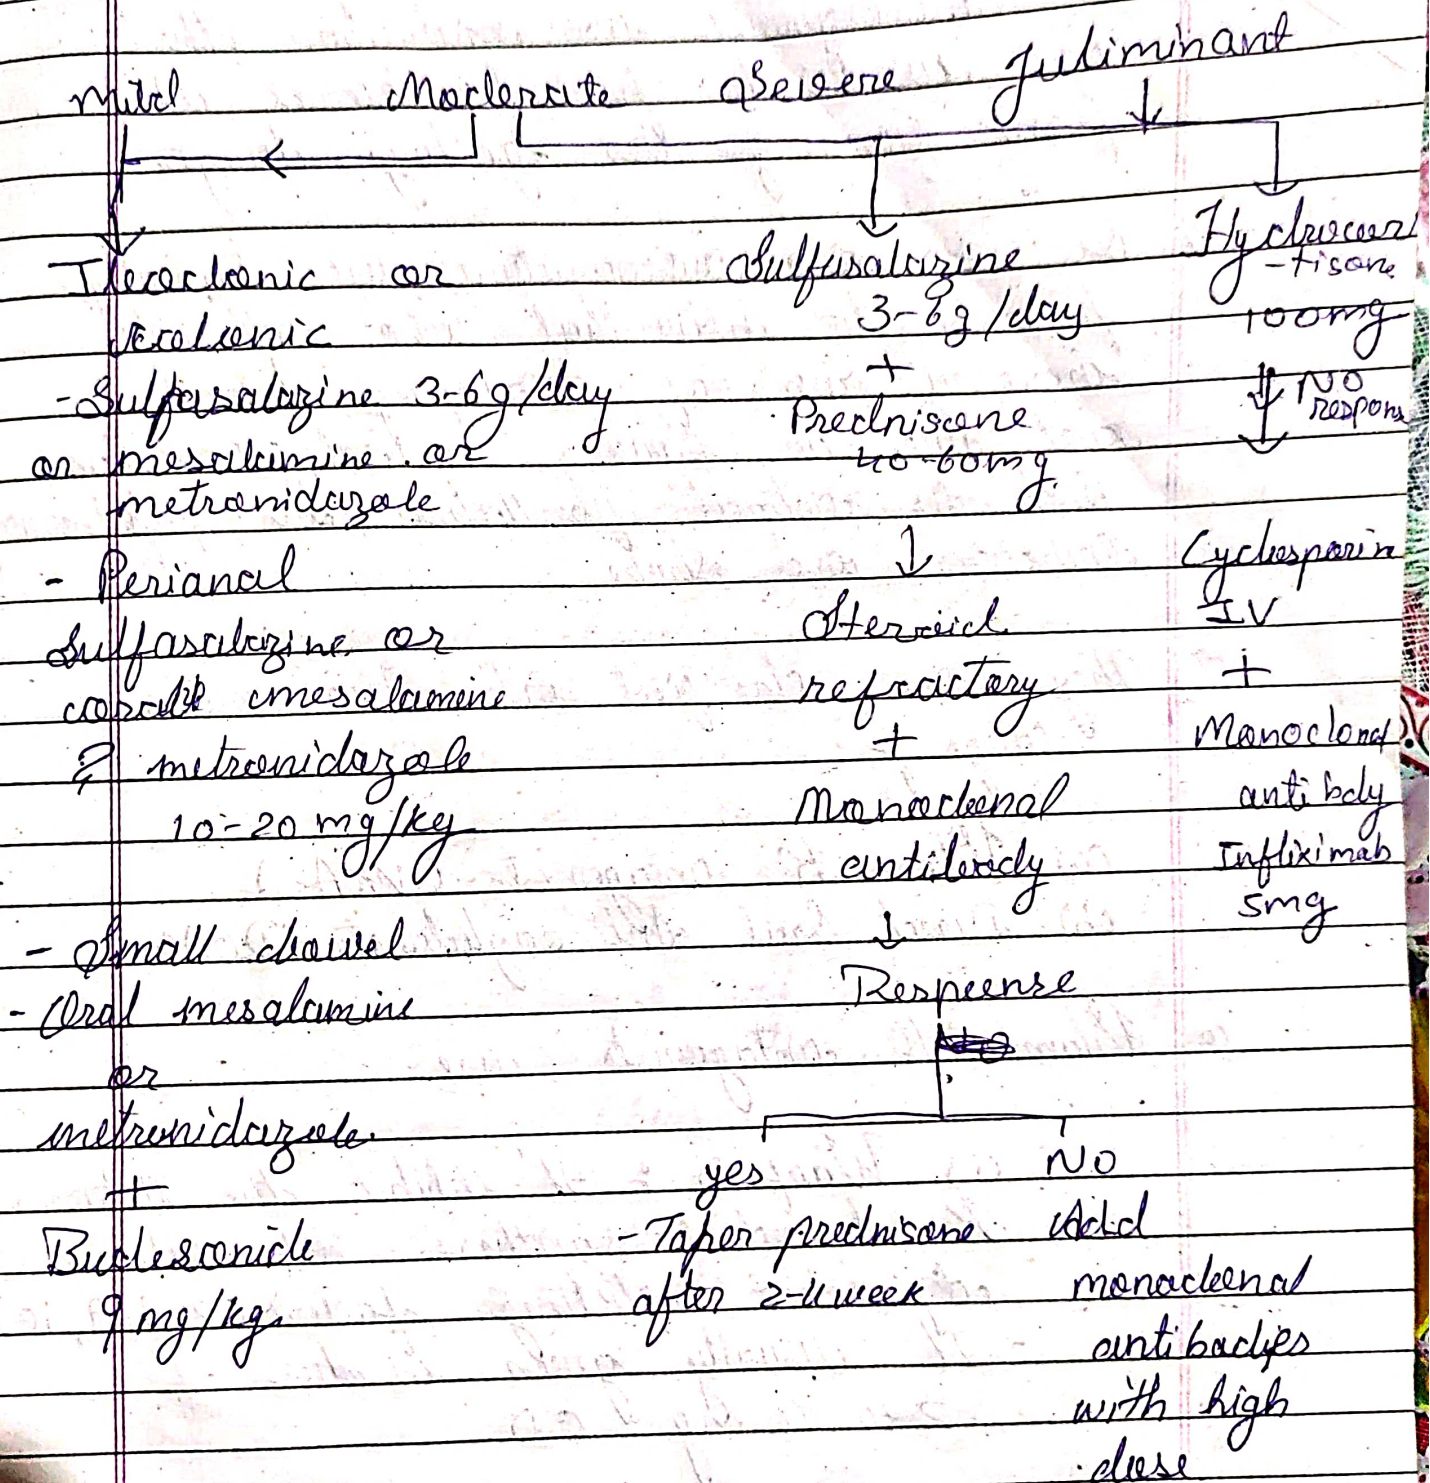 Mild Moderate Severe Fuliminant
Ileocolonic or
colonic
- Sulfasalazine 3-6g/day
or mesalamine or
metronidazole
- Perianal
Sulfasalazine or
oral mesalamine
& metronidazole
10-20 mg/kg
- Small bowel
- Oral mesalamine
or
metronidazole
+
Budesonide
9 mg/kg
Sulfasalazine
3-6g/day
+
Prednisone
40-60mg
Steroid
refractory
+
Monoclonal
antibody
Response
yes
- Taper prednisone
after 2-4 week
No
Add
monoclonal
antibodies
with high
dose
Hydrocor
-tisone
100mg
No
respons
Cyclosporin
IV
+
Monoclonal
antibody
Infliximab
5mg